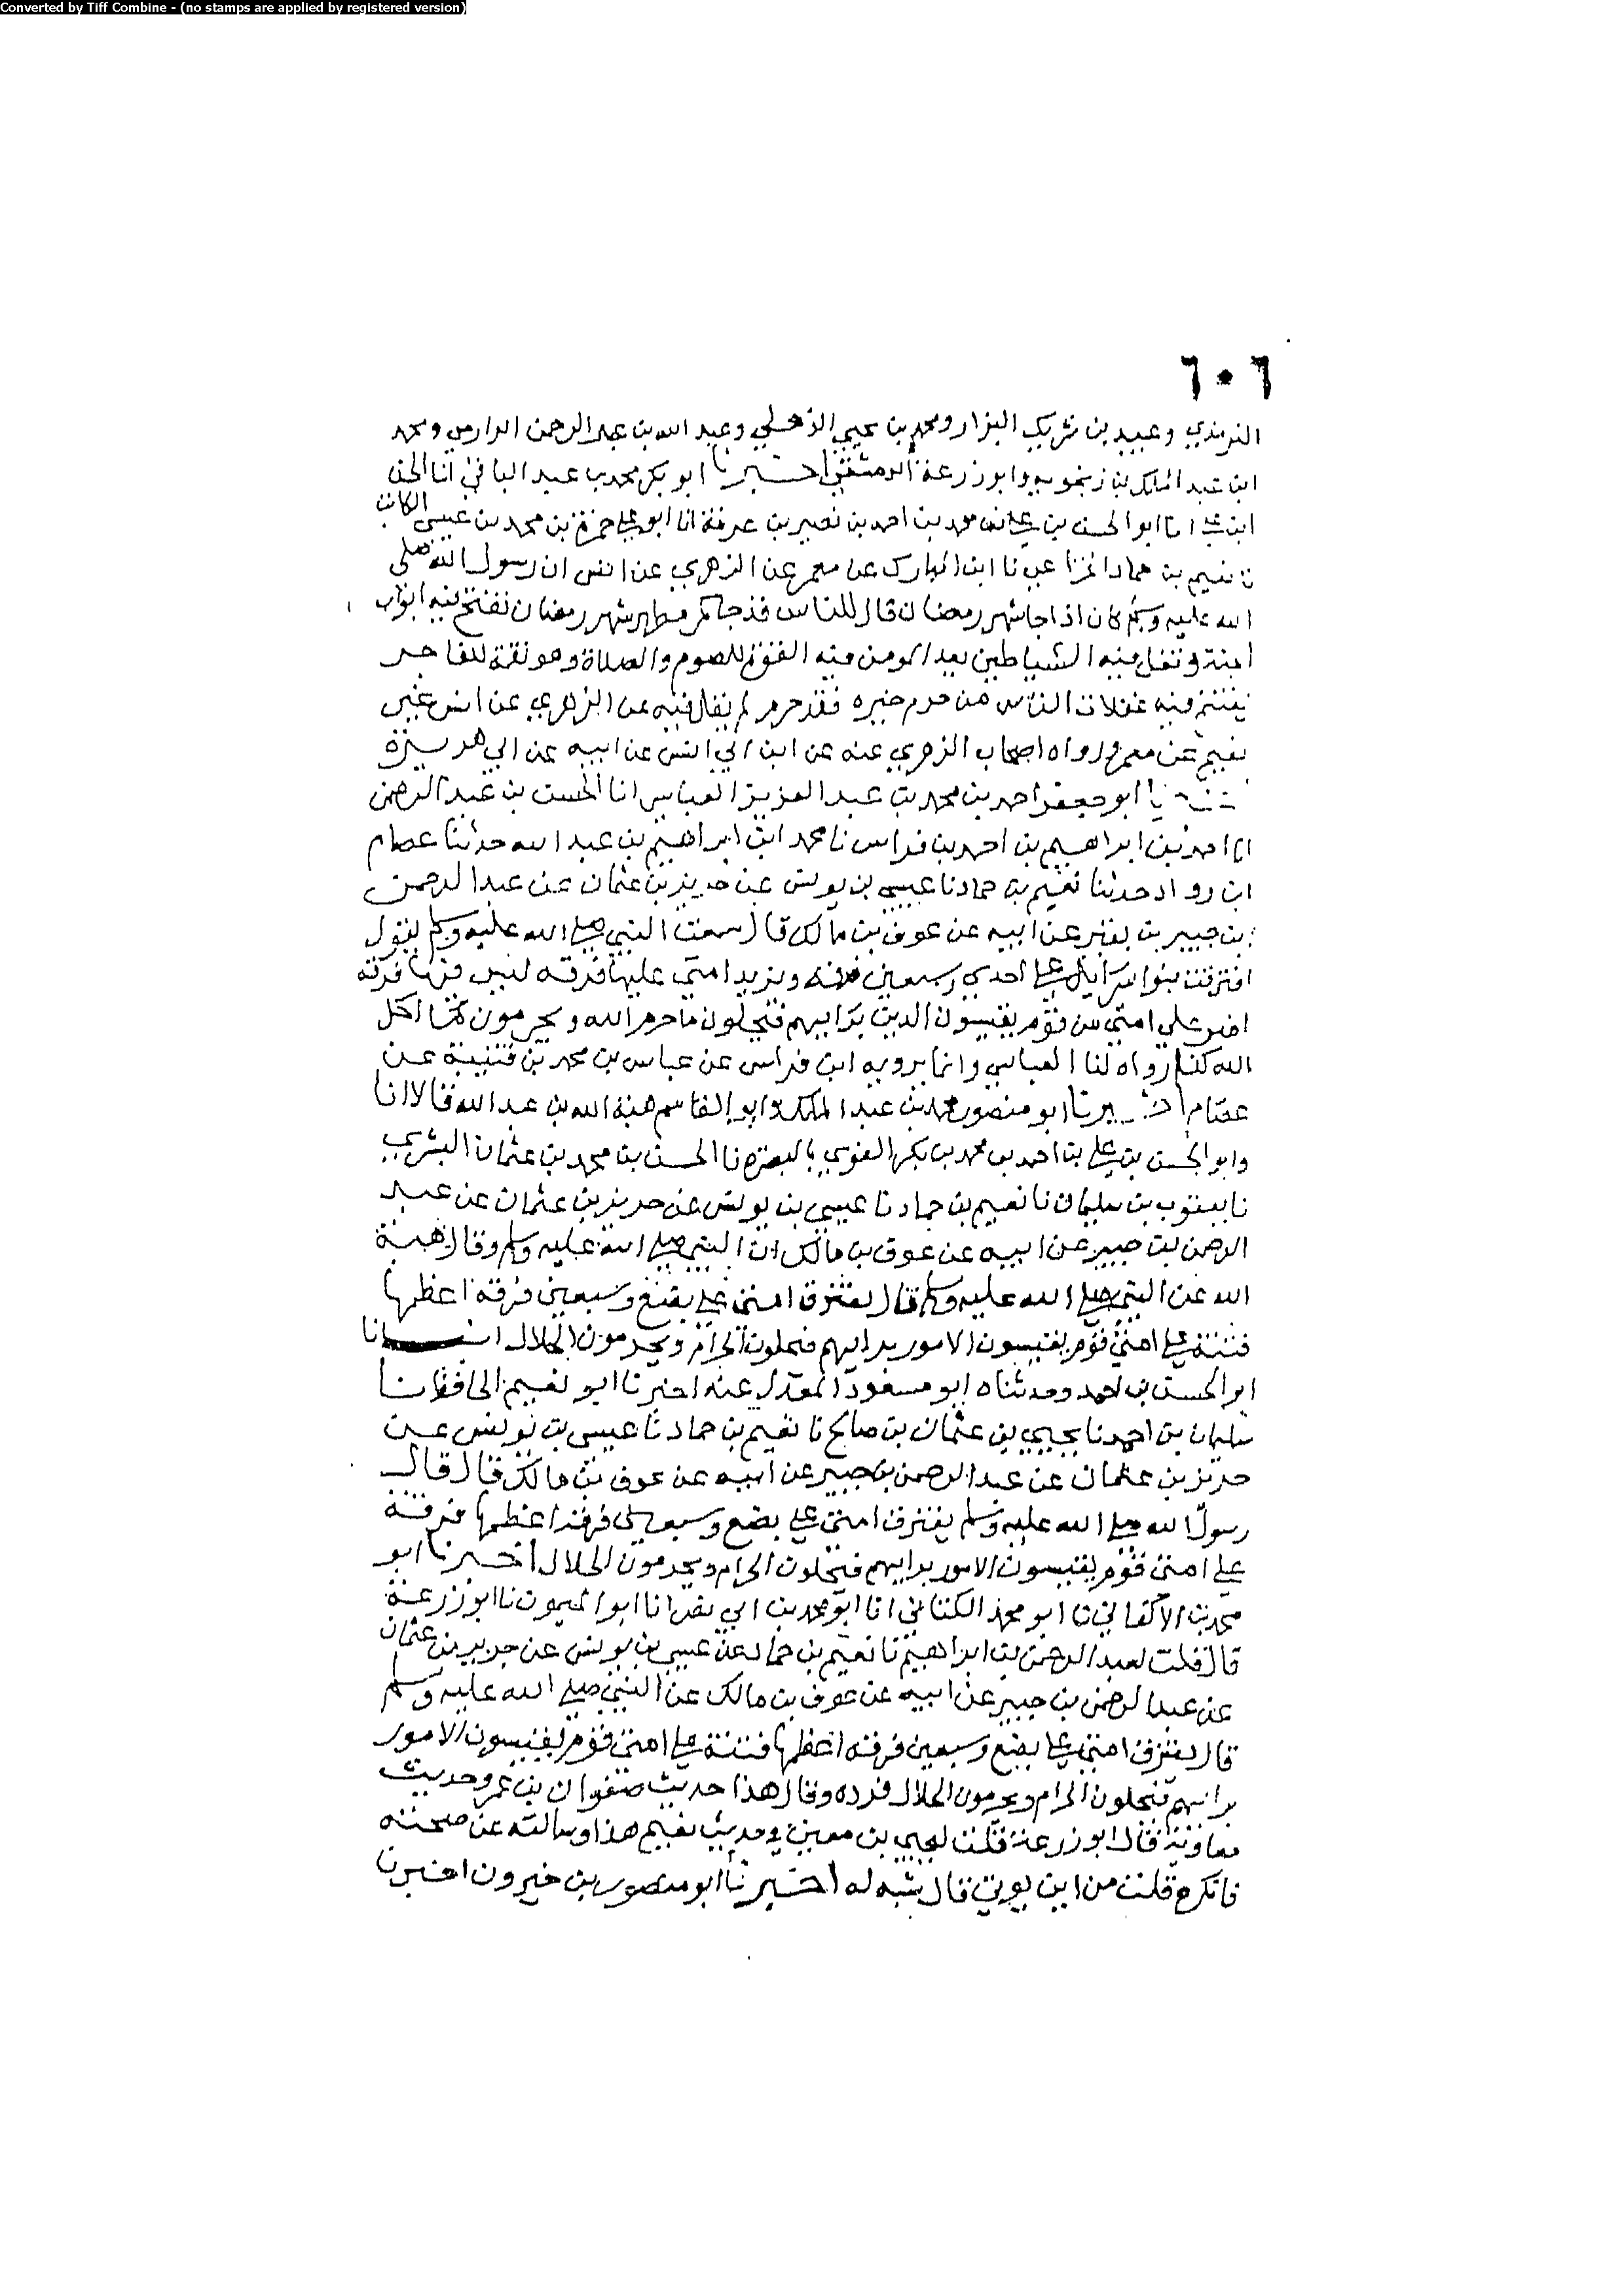 Converted by Tiff Combine - (no stamps are applied by registered version)
٦٠٦
الترمذي وعبيد بن شريك البزار ومحمد بن يحيى الذهلي وعبد الله بن عبد الرحمن الدارمي ومحمد
ابن عبد الملك بن زنجويه وابو زرعة الدمشقي اخبرنا ابو بكر محمد بن عبد الباقي انا الحسن
ابن علي انا ابو الحسن بن علي محمد بن احمد بن نصير بن عرفة انا ابو علي حمزة بن محمد بن عيسى الكاتب
نا نعيم بن حماد الخزاعي نا ابن المبارك عن معمر عن الزهري عن انس ان رسول الله صلى
الله عليه وسلم كان اذا جا شهر رمضان قال للناس قد جاكم مطهر شهر رمضان تفتح فيه ابواب
الجنة وتغل فيه الشياطين يعد المومن فيه القوة للصوم والصلاة وهو نقمة للفاجر
يغتنم فيه غفلات الناس من حرم خيره فقد حرم لم يقل فيه عن الزهري عن انس غير
نعيم عن معمر ورواه اصحاب الزهري عنه عن ابن ابي انس عن ابيه عن ابي هريرة
ابو جعفر احمد بن محمد بن عبد العزيز العباسي انا الحسن بن عبد الرحمن
انا احمد بن ابراهيم بن احمد بن فراس نا محمد ابن ابراهيم بن عبد الله حدثنا عصام
ابن رواد حدثنا نعيم بن حماد نا عيسى بن يونس عن حريز بن عثمان عن عبد الرحمن
بن جبير بن نفير عن ابيه عن عوف بن مالك قال سمعت النبي صلى الله عليه وسلم يقول
افترقت بنوا اسرايل على احدي وسبعين فرقة وتزيد امتي عليها فرقه ليس فيها فرقة
اضر علي امتي من قوم يقيسون الدين برايهم فيحلون ما حرم الله ويحرمون ما احل
الله كذا رواه لنا العباسي وانما يرويه ابن فراس عن عباس بن محمد بن قتيبة عن
عصام اخبرنا ابو منصور محمد بن عبد الملك وابو القاسم هبة الله بن عبد الله قالا انا
وابو الحسن بن علي بن احمد بن محمد بن بكر الفوي بالبصرة نا الحسن بن محمد بن عثمان
نا يعقوب بن سليمان نا نعيم بن حماد نا عيسى بن يونس عن حريز بن عثمان عن عبد
الرحمن بن جبير عن ابيه عن عوف بن مالك ان النبي صلى الله عليه وسلم وقال هبة
الله عن النبي صلى الله عليه وسلم قال يفترق امتي على بضع وسبعين فرقة اعظمها
فتنة على امتي قوم يقيسون الامور برايهم فيحلون الحرام ويحرمون الحلال انا
ابو الحسن بن احمد وحدثناه ابو مسعود المعدل عنه اخبرنا ابو نعيم الحافظ نا
سليمان بن احمد نا يحيى بن عثمان بن صالح نا نعيم بن حماد نا عيسى بن يونس عن
حريز بن عثمان عن عبد الرحمن بن جبير عن ابيه عن عوف بن مالك قال قال
رسول الله صلى الله عليه وسلم يفترق امتي على بضع وسبعين فرقة اعظمها فرقة
على امتي قوم يقيسون الامور برايهم فيحلون الحرام ويحرمون الحلال اخبرنا ابو
محمد بن الاكفاني نا ابو محمد الكتاني انا ابو محمد بن ابي نصر انا ابو الميمون نا ابو زرعة
قال قلت لعبد الرحمن بن ابراهيم نا نعيم بن حماد عن عيسى بن يونس عن حرير بن عثمان
عن عبد الرحمن بن جبير عن ابيه عن عوف بن مالك عن النبي صلى الله عليه وسلم
قال يفترق امتي على بضع وسبعين فرقة اعظمها فتنة على امتي قوم يقيسون الامور
برايهم فيحلون الحرام ويحرمون الحلال فرده وقال هذا حديث صفوان بن عمرو حديث
معاوية قال ابو زرعة قلت ليحيى بن معين في حديث نعيم هذا وسالته عن صحته
فانكره قلت من اين يوتى قال شبه له اخبرنا ابو منصور بن خيرون اخبرنا